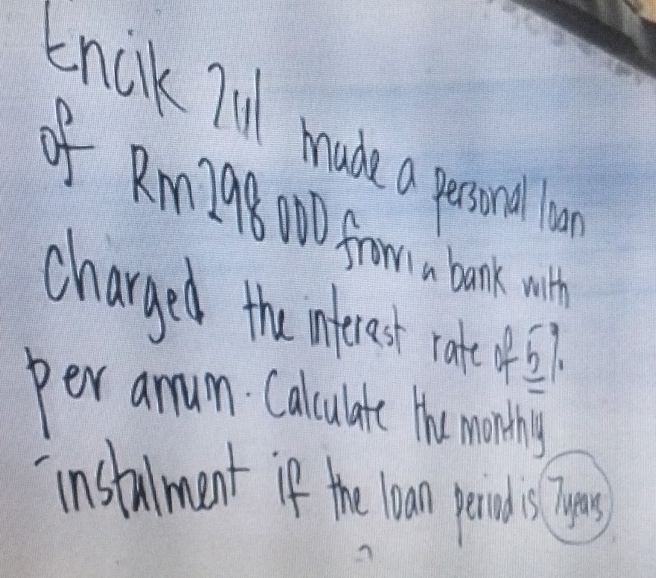 Encik Zul made a personal loan
of Rm298 000 from a bank with
charged the interest rate of 5%
per annum. Calculate the monthly
instalment if the loan period is 7years
?